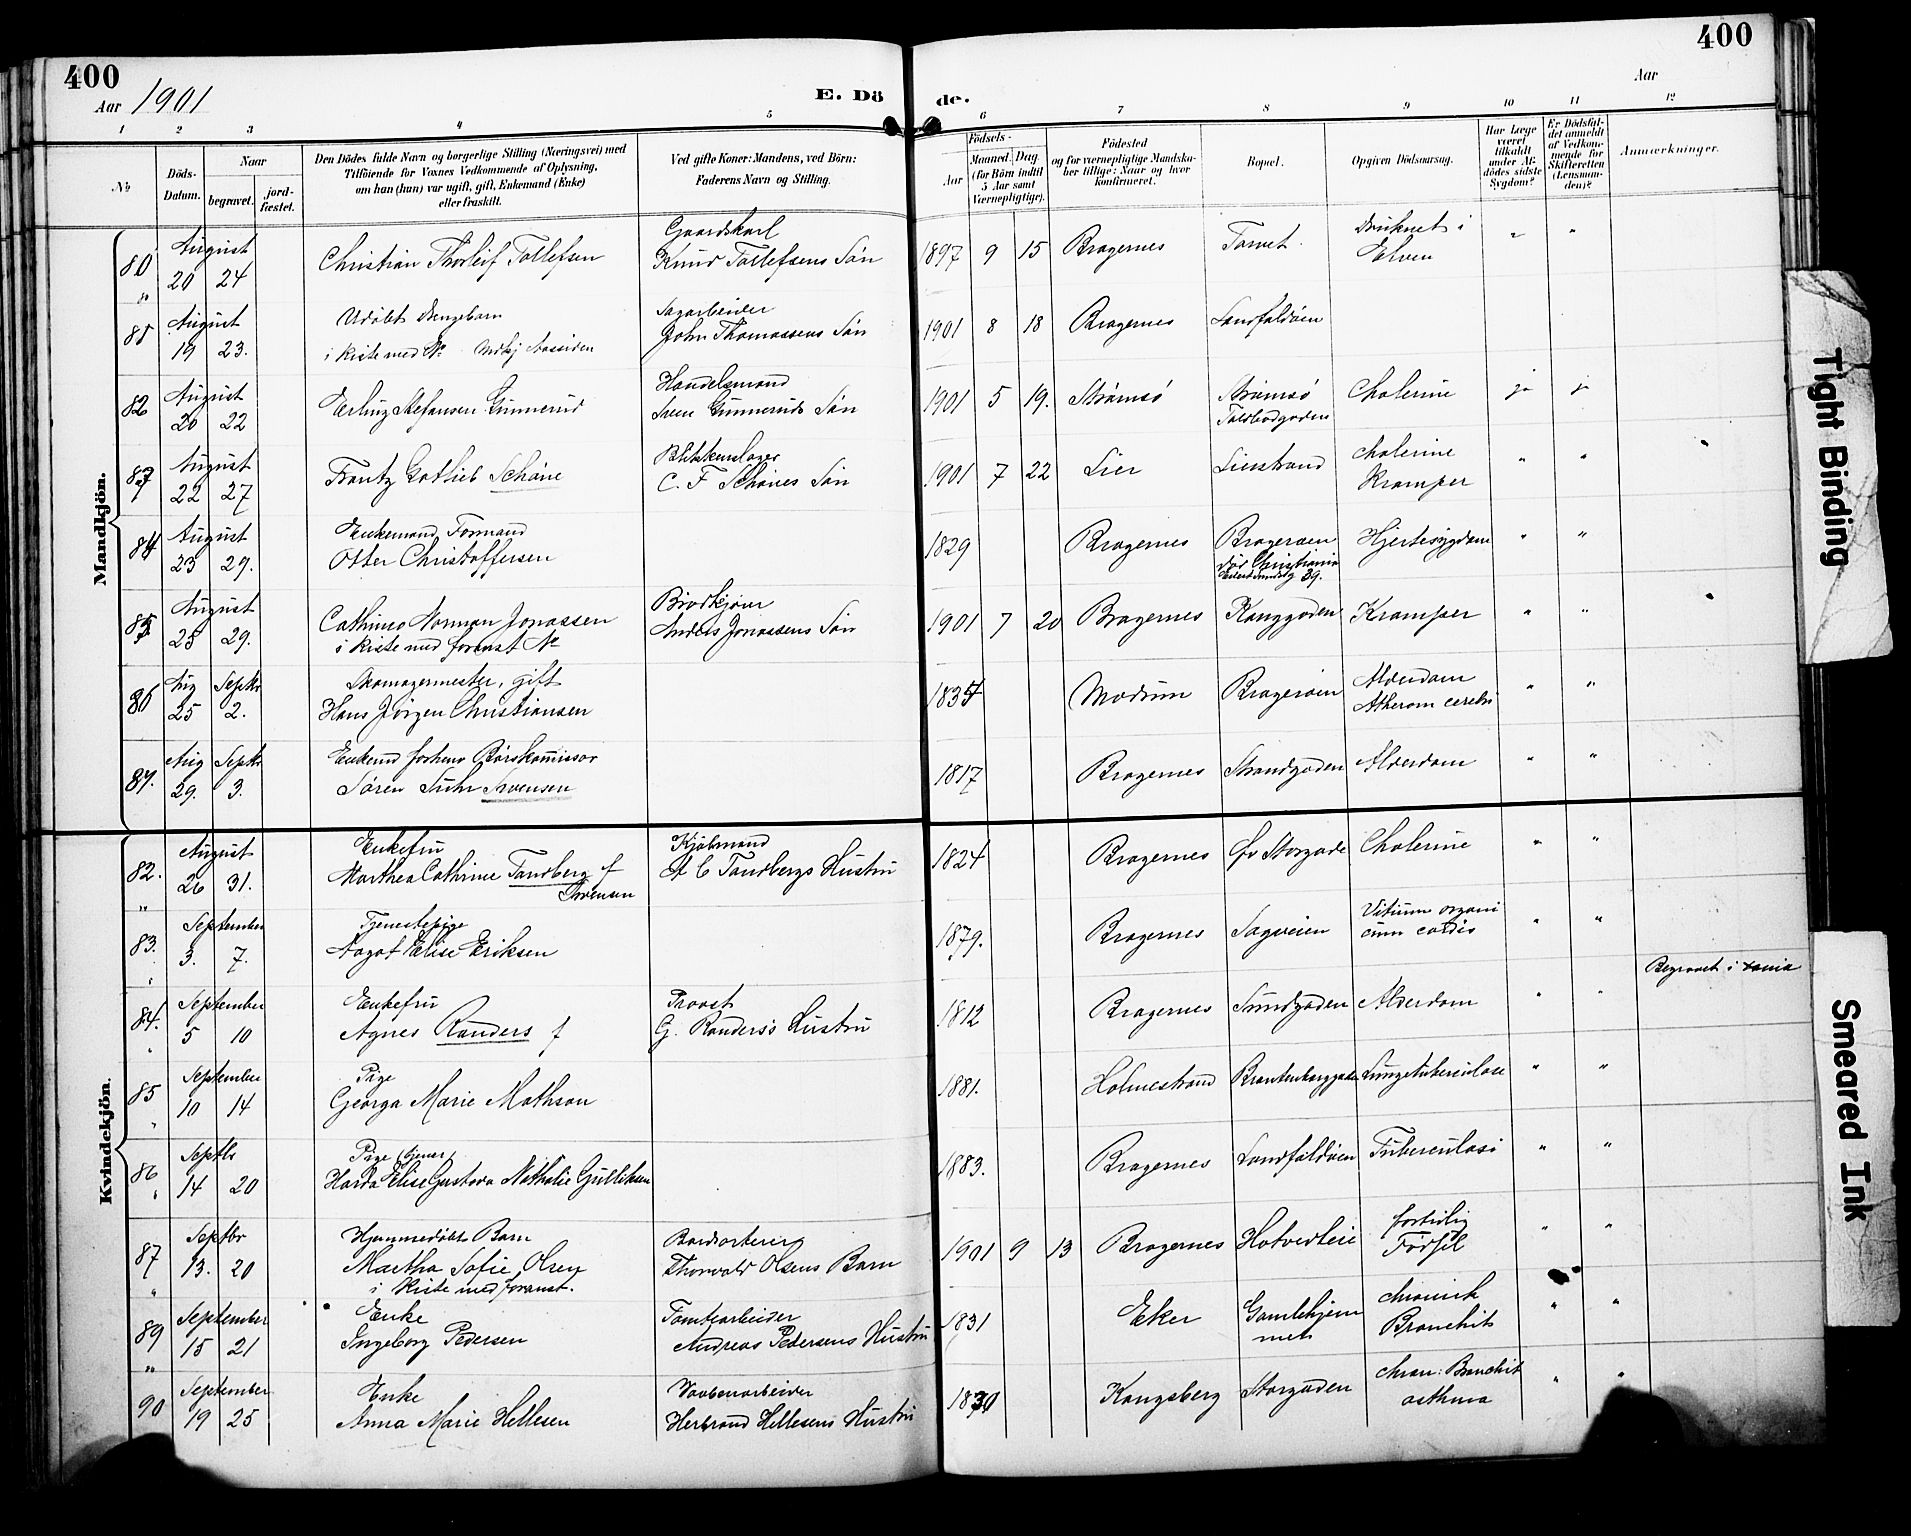 400
400
Aar 1901
E. Dö de.
Aar
1 2 3 4 5 6 7 8 9 10 11 12
No
Döds-Datum.
Naar
begravet.
jord-fæstet.
Den Dödes fulde Navn og borgerlige Stilling (Næringsvei) med
Tilföiende for Voxnes Vedkommende af Oplysning,
om han (hun) var ugift, gift, Enkemand (Enke)
eller fraskilt.
Ved gifte Koner: Mandens, ved Börn:
Faderens Navn og Stilling.
Födsels-
Aar
Maaned. Dag
(for Börn indtil
5 Aar samt
Værnepligtige).
Födested
og for værnepligtige Mandska-
ber tillige: Naar og hvor
konfirmeret.
Bopæl.
Opgiven Dödsaarsag.
Har Læge
været
tilkaldt
under Af-
dödes sidste
Sygdom?
Er Dödsfal-
det anmeldt
af Vedkom-
mende for
Skifteretten
(Lensman-
den)?
Anmærkninger.
Mandkjön.
80 August Gaardskarl Druknet i
20 24 Christian Thorleif Tollefsen Knud Tollefsens Søn 1897 9 15 Bragernes Torvet Elven
81 August Udøbt Drengebarn Sagarbeider
19 23. i Kiste med No John Thomassens Søn 1901 8 18 Bragernes Landfaldøen
82 August Handelsmand
20 22 Erling Stefansen Gunnerud Iver Gunneruds Søn 1901 5 19. Strømsø Strømsø Toldbodgaden Cholerine ja ja
83 August Blikkenslager
22 27 Frantz Gotlieb Schöne C. F Schönes Søn 1901 7 22 Lier Lierstrand Cholerine Kramper " "
84 August Enkemand, Formand
23 29. Otter Christoffersen 1829 Bragernes Bragerøen Hjertesygdom " "
dør Christiania
39.
85 August Brødkjører
25 29. Cathinco Norman Jonassen Anders Jonassens Søn 1901 7 20 Bragernes Konggaden Kramper " "
i Kiste med foranst No
86 Aug Septbr Skomagermester, gift
25 2. Hans Jörgen Christiansen 1834 Modum Bragerøen Alderdom Atherom cerebri " "
87. Aug Septbr Enkemd forhenv Børskommissær
29. 3. Søren Suhr Svensen 1817 Bragernes Strandgaden Alderdom " "
Kvindekjön.
82. August Enkefru Kjøbmand
26 31. Marthea Cathrine Tandberg f Svensen A C Tandbergs Hustru 1824 Bragernes Øv Storgade Cholerine " "
83. September Tjenestepige
3. 7. Aagot Elise Eriksen 1879. Bragernes Sagveien Vitium organi cum cordis " "
84. September Enkefru Provst
5 10 Agnes Randers f G. Randers's Hustru 1812 Bragernes Sundgaden Alderdom " " Begravet i
85 September Pige
10 14 Georga Marie Mathson 1881. Holmestrand Brantenborggaden Lungetuberculose " "
86 Septbr Pige (tjener)
14 20 Harda Elise Gustava Nathalie Gulliksen 1883. Bragernes Landfaldøen Tuberculosi " "
87 Septbr Hjemmedøbt Barn Bordsorterer
13. 20 Martha Sofie Olsen Thorvald Olsens Barn 1901 9 13 Bragernes Hotvedtleie fortidlig Fødsel " "
i Kiste med foranst.
89 September Enke Tomtearbeider
15 21 Ingeborg Pedersen Andreas Pedersens Hustru 1831 Eker Gamlehjemmet chronisk Bronchit " "
90 September Enke Vaabenarbeider
19 25 Anna Marie Hellesen Herbrand Hellesens Hustru 1830 Kongsberg Storgaden chron: Bronchit asthma " "
Tight Binding
Smeared Ink